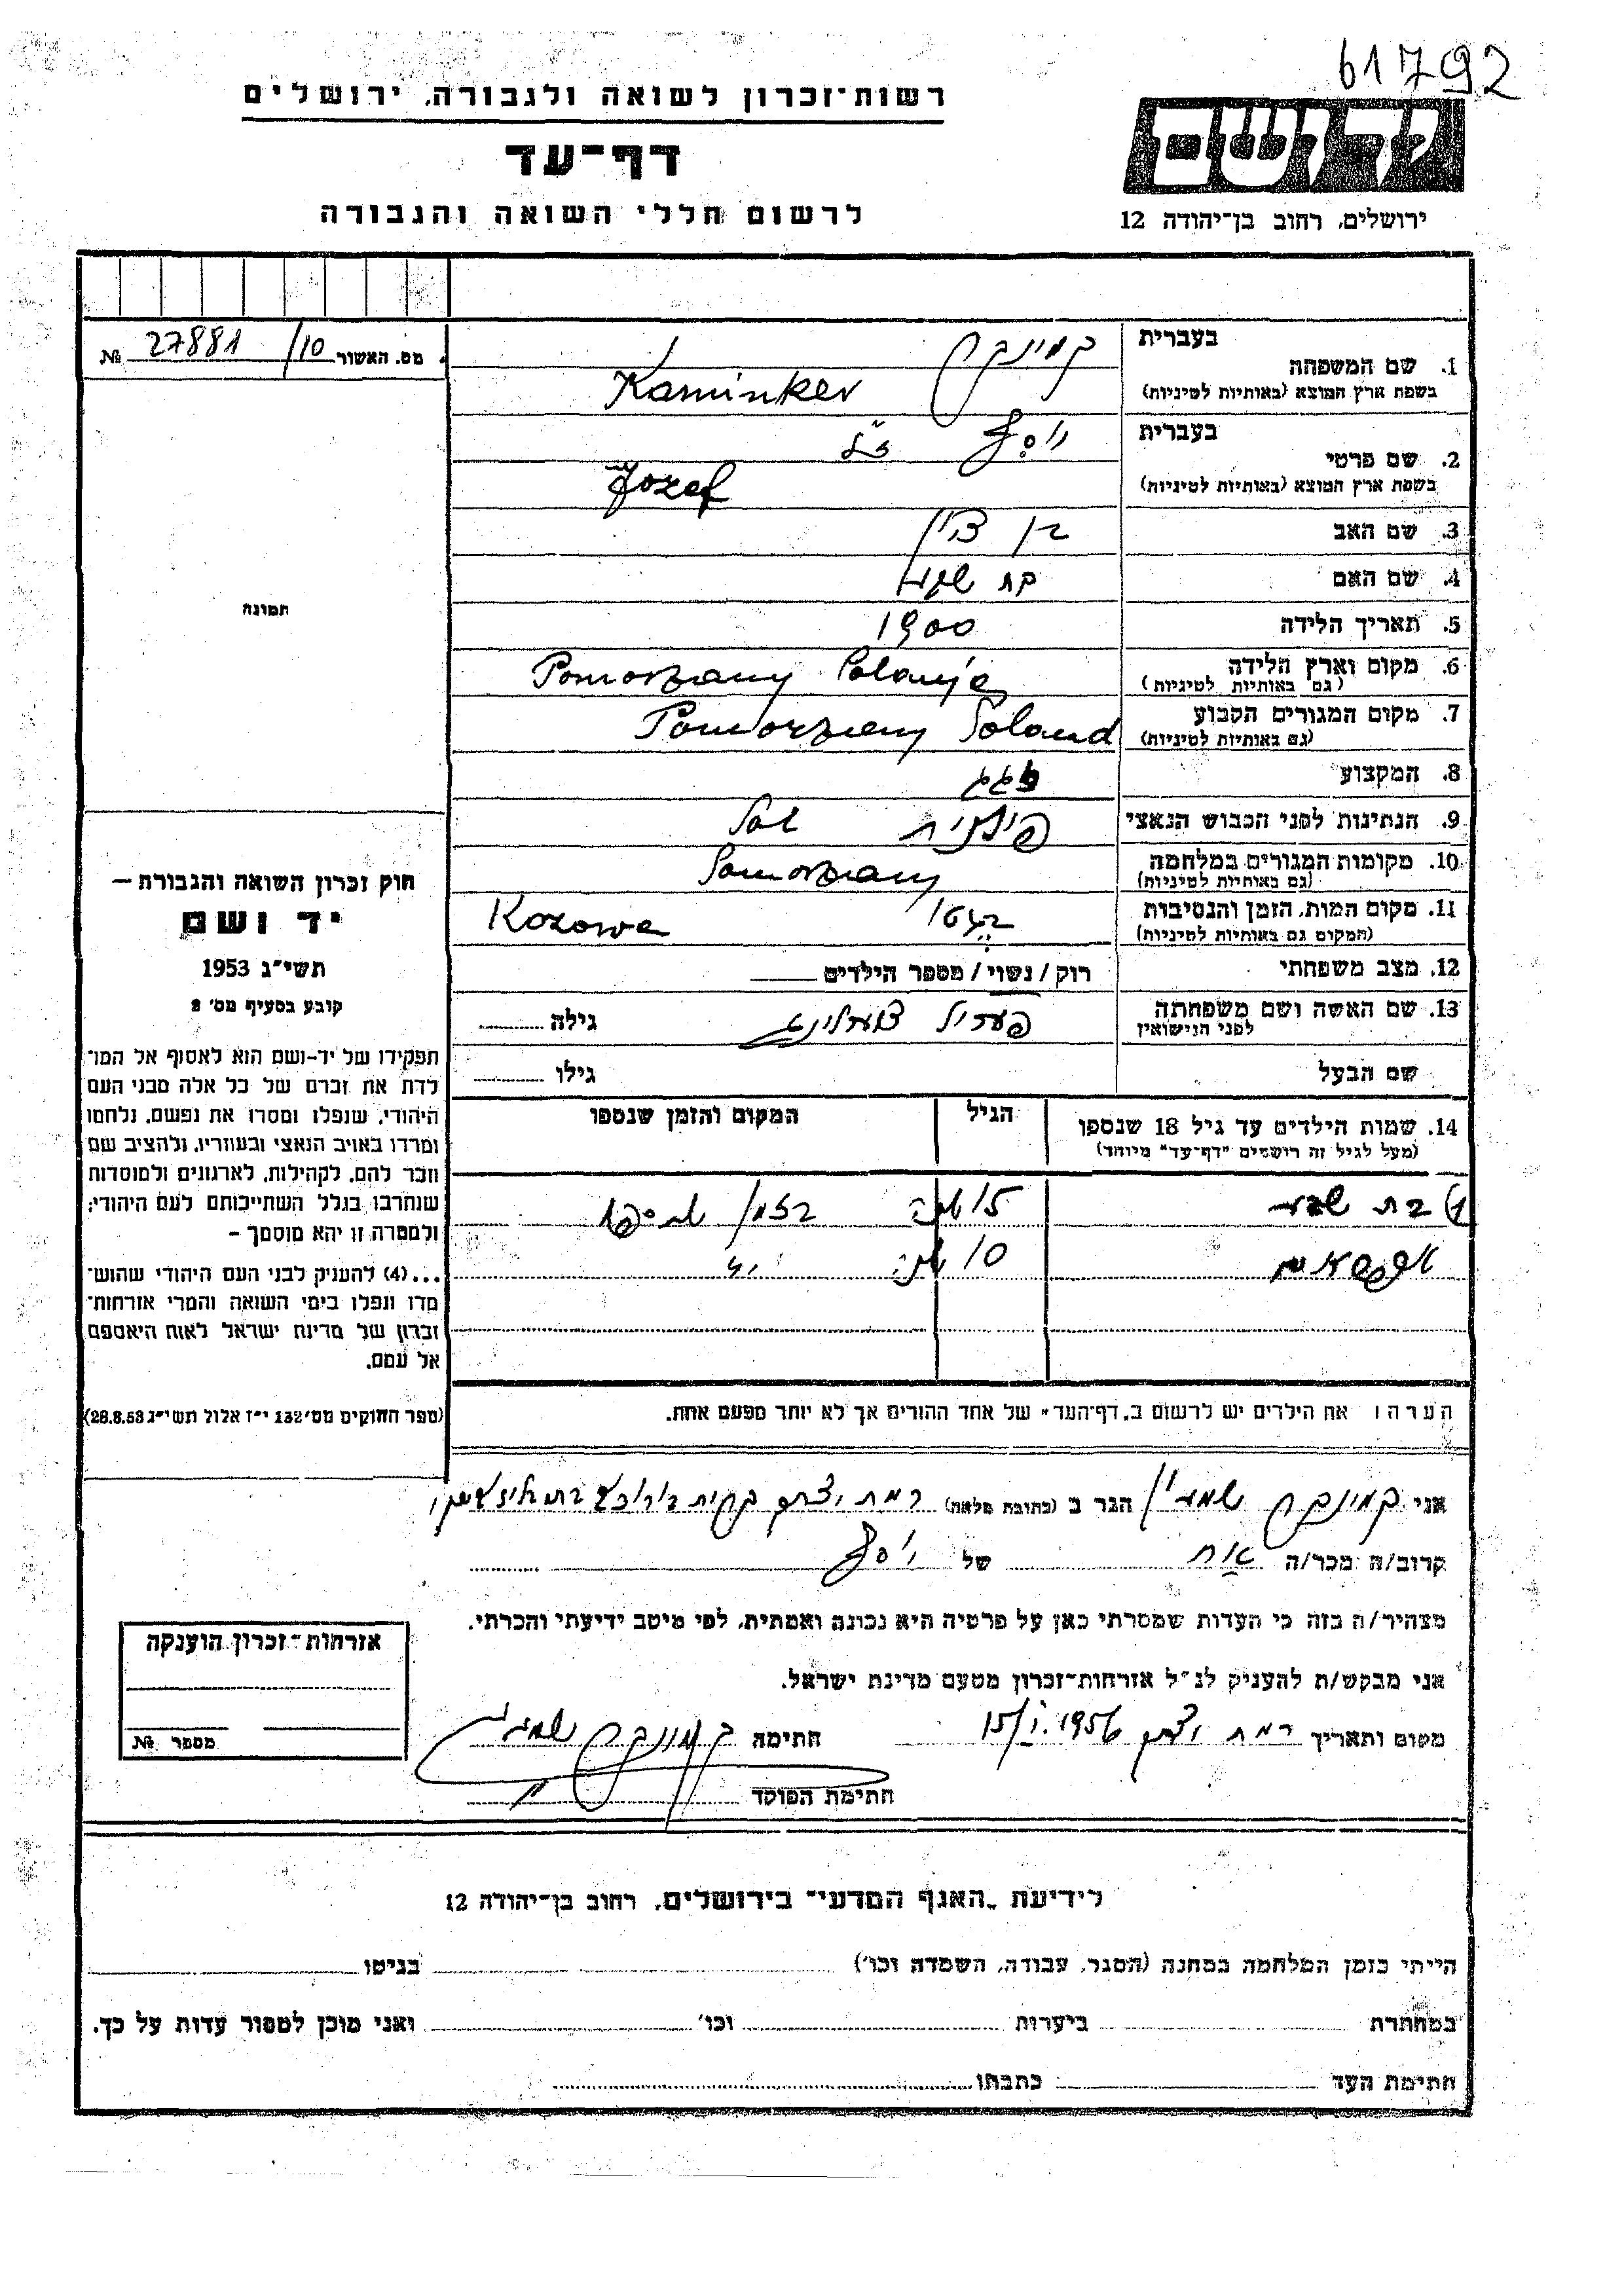 61792
רשות־זכרון לשואה ולגבורה, ירושלים
דף־עד
לרשום חללי השואה והגבורה
יד ושם
ירושלים, רחוב בן־יהודה 12
מס. האשור 10/ 27881 №
בעברית
1. שם המשפחה
בשפת ארץ המוצא (באותיות לטיניות)
קמינקר
Kaminker
בעברית
2. שם פרטי
בשפת ארץ המוצא (באותיות לטיניות)
יוסף ז"ל
Jozef
3. שם האב בן ציון
4. שם האם
5. תאריך הלידה 1900
6. מקום וארץ הלידה Pomorzany
(גם באותיות לטיניות)
7. מקום המגורים הקבוע Pomorzany Poland
(גם באותיות לטיניות)
8. המקצוע
9. הנתינות לפני הכבוש הנאצי פולנית Pol
10. מקומות המגורים במלחמה Pomorzany
(גם באותיות לטיניות)
11. מקום המות, הזמן והנסיבות Kozowa
(המקום גם באותיות לטיניות)
12. מצב משפחתי רוק / נשוי / מספר הילדים
13. שם האשה ושם משפחתה גילה
לפני הנישואין
שם הבעל גילו
14. שמות הילדים עד גיל 18 שנספו הגיל המקום והזמן שנספו
(מעל לגיל זה רושמים "דף־עד" מיוחד)
1) בת שבע 15 שנה
10 שנה
הערה: את הילדים יש לרשום ב„דף־העד" של אחד ההורים אך לא יותר מפעם אחת.
תמונה
חוק זכרון השואה והגבורת —
יד ושם
תשי"ג 1953
קובע בסעיף מס' 2
תפקידו של יד-ושם הוא לאסוף אל המו־
לדת את זכרם של כל אלה מבני העם
היהודי, שנפלו ומסרו את נפשם, נלחמו
ומרדו באויב הנאצי ובעוזריו, ולהציב שם
וזכר להם, לקהילות, לארגונים ולמוסדות
שנחרבו בגלל השתייכותם לעם היהודי;
ולמטרה זו יהא מוסמך –
...(4) להעניק לבני העם היהודי שהוש־
מדו ונפלו בימי השואה והמרי אזרחות־
זכרון של מדינת ישראל לאות היאספם
אל עמם.
(ספר החוקים מס' 132 י"ז אלול תשי"ג 28.8.53)
אני קמינקר הגר ב (כתובת מלאה) רמת יצחק
קרוב/ה מכר/ה אח של יוסף
מצהיר/ה בזה כי העדות שמסרתי כאן על פרטיה היא נכונה ואמתית, לפי מיטב ידיעתי והכרתי.
אני מבקש/ת להעניק לנ"ל אזרחות־זכרון מטעם מדינת ישראל.
מקום ותאריך רמת יצחק 1956 חתימה קמינקר
חתימת הפוקד
אזרחות־זכרון הוענקה
מספר №
לידיעת „האגף המדעי" בירושלים, רחוב בן־יהודה 12
הייתי בזמן המלחמה במחנה (הסגר, עבודה, השמדה וכו') בגיטו
במחתרת ביערות וכו' ואני מוכן למסור עדות על כך.
חתימת העד כתבתו